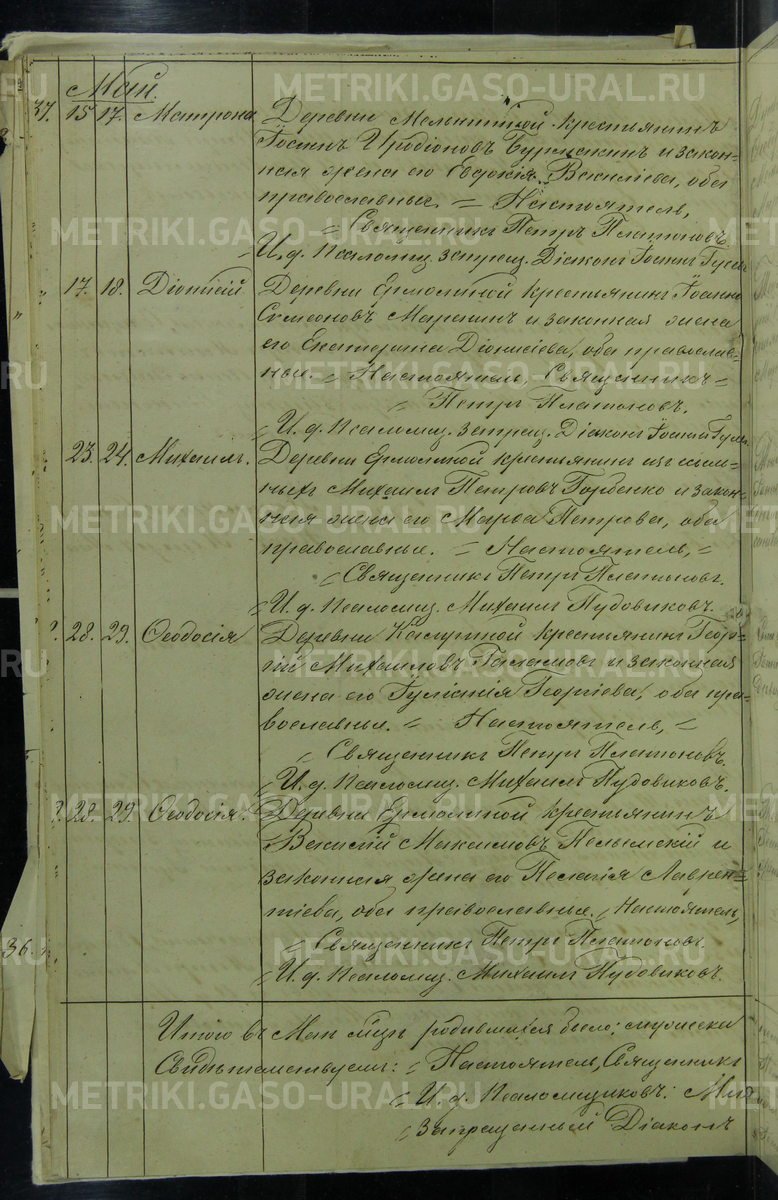 Май.
37. 15. 17. Матрона Деревни крестьянинъ
Іоаннъ Иродіоновъ и закон-
ная жена его Евдокія Васильева, оба
православные. = Настоятель,
= Священникъ Петръ Платоновъ.
= И. д. Псаломщ. запрещ. Діаконъ Іоаннъ
17. 18. Діонисій Деревни Ермолиной крестьянинъ Іоаннъ
Симеоновъ и законная жена
его Екатерина Діонисіева, оба православ-
ные. = Настоятель, Священникъ =
= Петръ Платоновъ.
= И. д. Псаломщ. запрещ. Діаконъ Іоаннъ
23. 24. Михаилъ. Деревни Ермолиной крестьянинъ изъ ссыль-
ныхъ Михаилъ Петровъ Горбенко и закон-
ная жена его Марѳа Петрова, оба
православные. = Настоятель, =
= Священникъ Петръ Платоновъ.
= И. д. Псаломщ. Михаилъ Пудовиковъ.
28. 29. Ѳеодосія Деревни крестьянинъ Геор-
гій Михаиловъ и законная
жена его Іуліанія Георгіева, оба пра-
вославные. = Настоятель, =
= Священникъ Петръ Платоновъ.
= И. д. Псаломщ. Михаилъ Пудовиковъ.
28. 29. Ѳеодосія. Деревни Ермолиной крестьянинъ
Василій Максимовъ Пелымскій и
законная жена его Пелагія Лаврен-
тіева, оба православные. = Настоятель,
= Священникъ Петръ Платоновъ.
36.
= И. д. Псаломщ. Михаилъ Пудовиковъ.
Итого въ Маѣ мцѣ родившихся было: мужеска
Свидѣтельствуемъ: = Настоятель, Священникъ
= И. д. Псаломщиковъ: Мих
= Запрещенный Діаконъ
METRIKI.GASO-URAL.RU